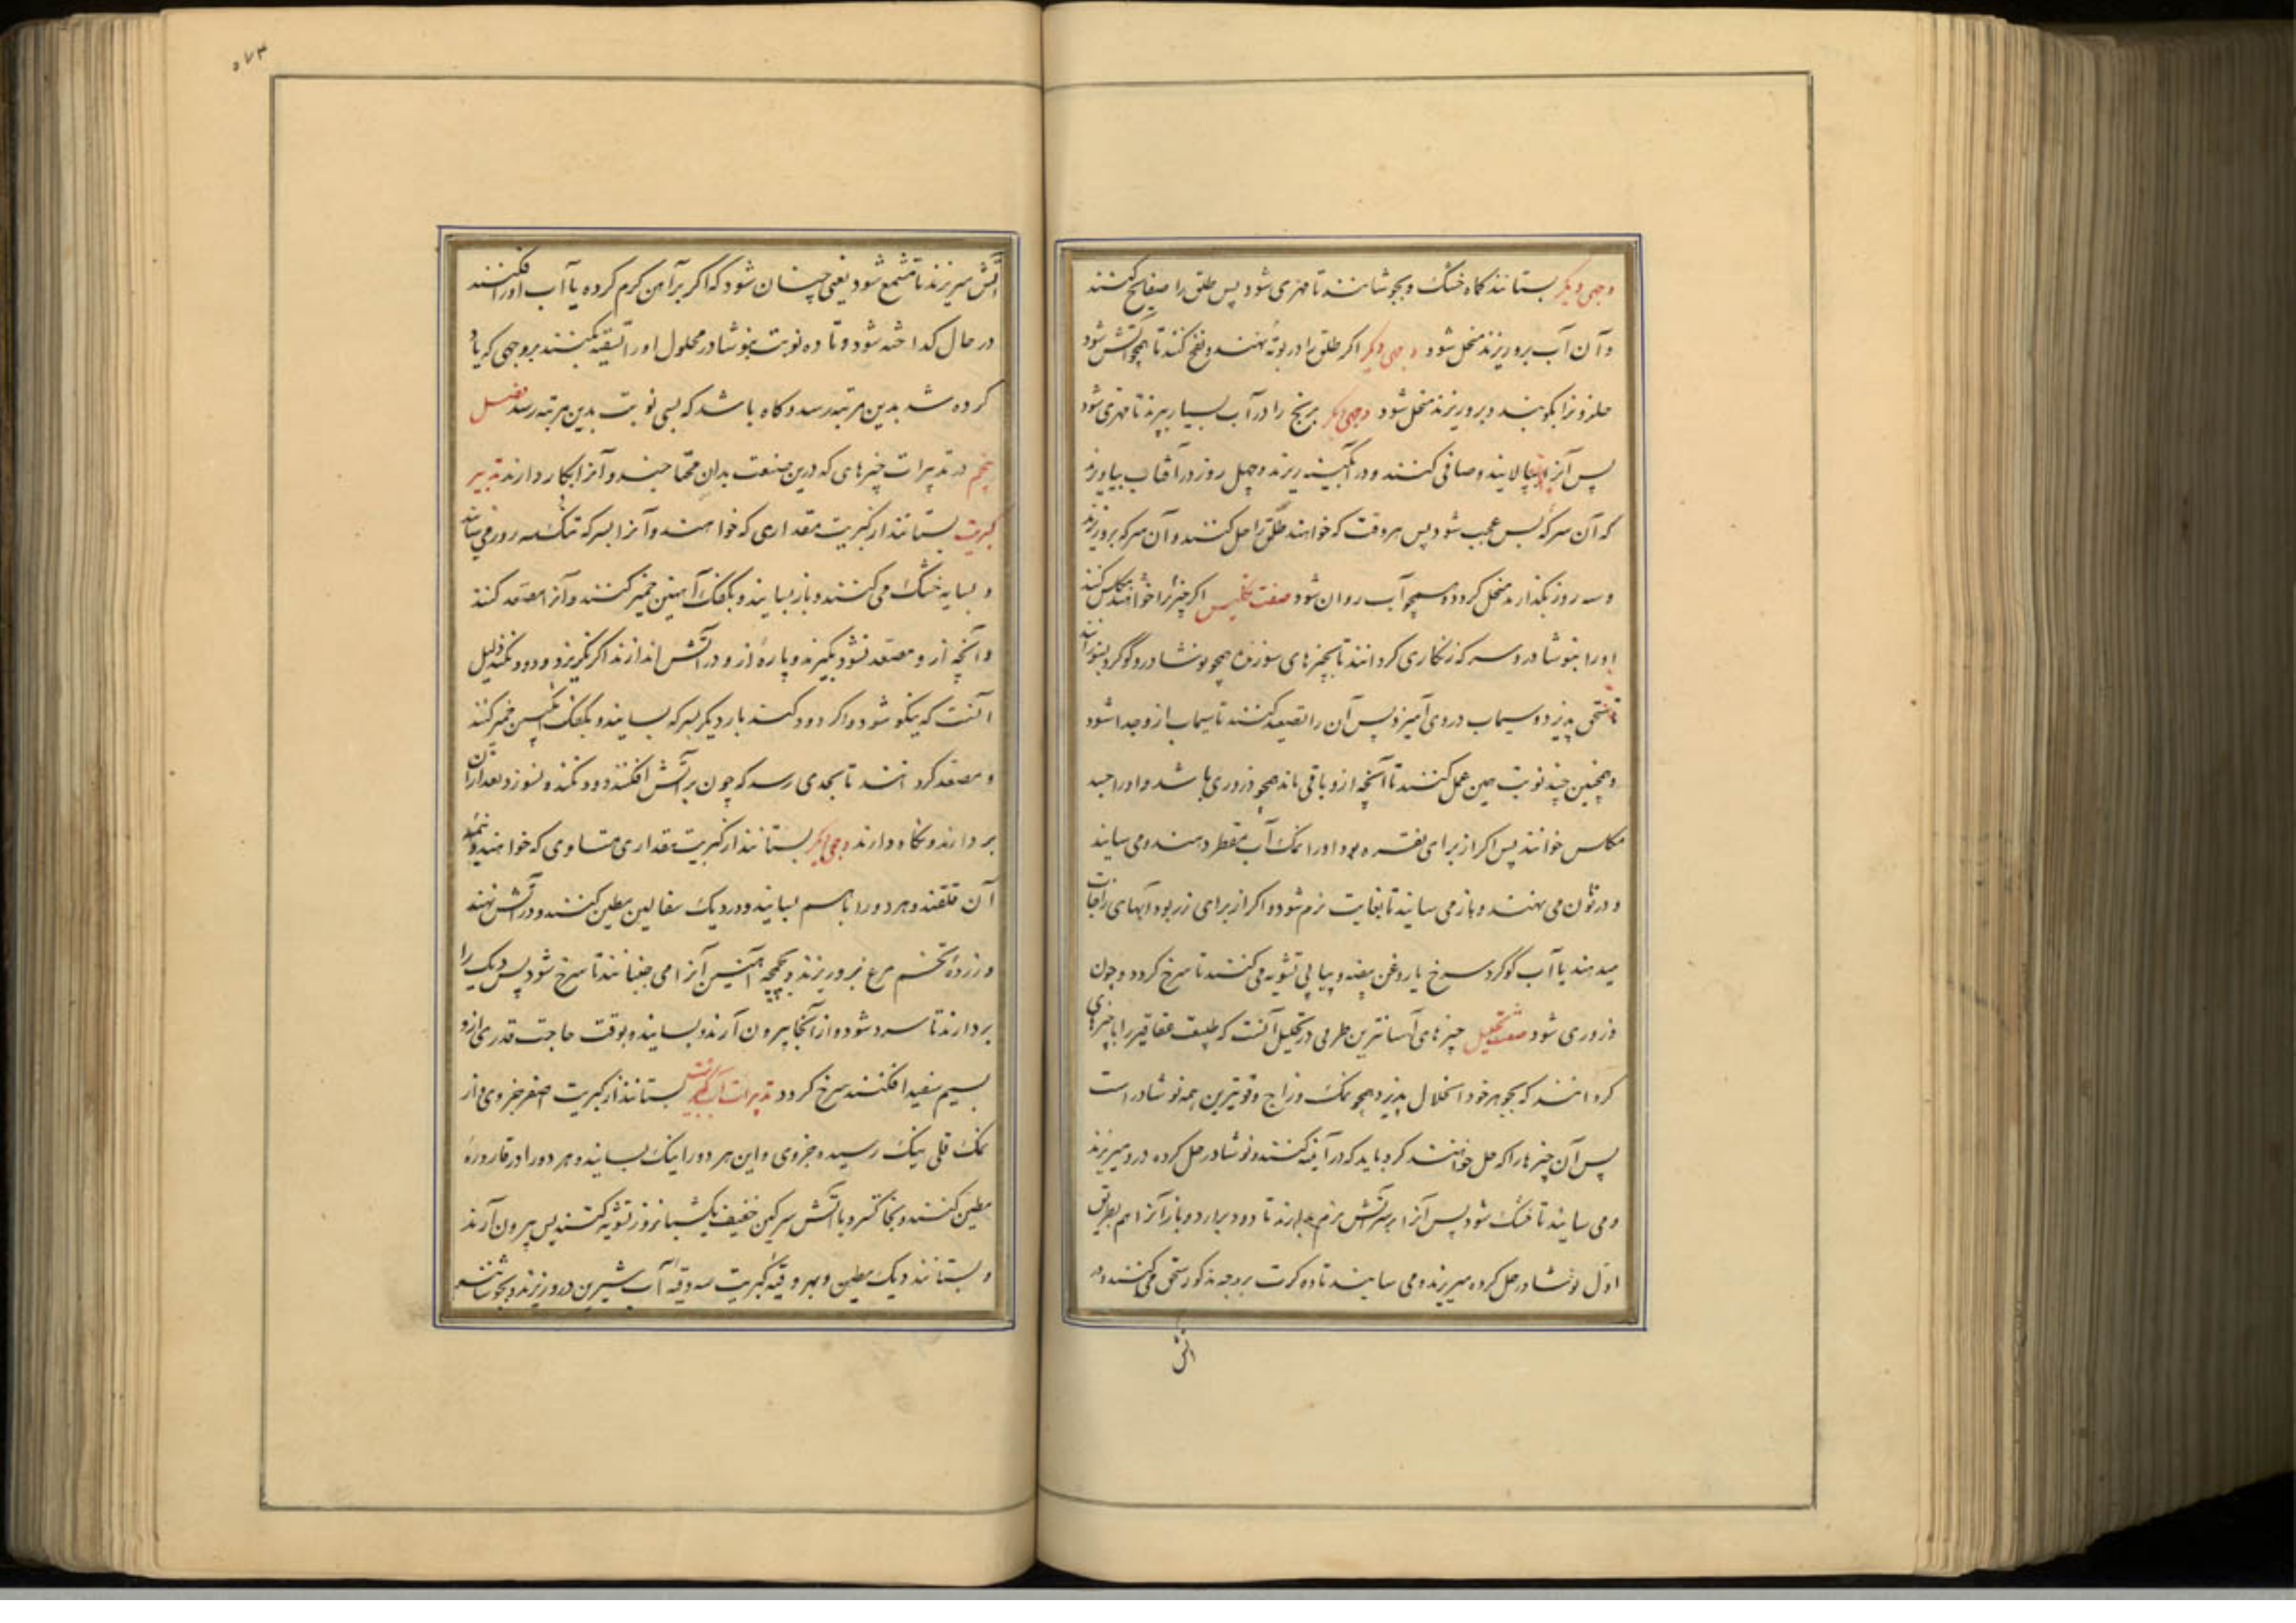 وجهی دیکر بستانند کاه خشک و بجوشانند تا مهری شود پس طلق را صفایح کنند
و آن آب برو ریزند منحل شود وجهی دیکر اکر طلق را در بوته نهند و نفخ کنند تا همچو آتش شود
حلزونرا بکوبند و برو ریزند منحل شود وجهی دیکر برنج را در آب بسیار بپزند تا مهری شود
پس آنرا بپالایند و صافی کنند و در آبگینه ریزند و چهل روز در آفتاب بیاویزند
که آن سرکهٔ بس عجب شود پس هر وقت که خواهند طلق را حل کنند و آن سرکه برو ریزند
و سه روز بگذارند منحل کردد و همچو آب روان شود صفت تکلیس اکر چیزیرا خواهند مکلس کنند
او را بنوشادر و سرکه زنکاری کردانند تا بچیزهای سوزنده همچو نوشادر و گوگرد بسوزانند
تا سحق پذیرد و سیماب در وی آمیزد پس آن را تصعید کنند تا سیماب ازو جدا شود
و همچنین چند نوبت همین عمل کنند تا آنچه ازو باقی ماند همچو ذروری باشد و او را جسد
مکلس خوانند پس اکر از برای نقره بود او را نمک آب مقطر دهند و می سایند
و در تون می نهند و باز می سایند تا بغایت نرم شود و اکر از برای زر بود آبهای زاجات
میدهند یا آب گوگرد سرخ یا روغن بیضه و پیاپی تشویه می کنند تا سرخ کردد و چون
ذروری شود صفت تحلیل چیزهای آسانترین طرقی در تحلیل آنست که طبیعت عقاقیر را با چیزهای
کردانند که بجوهر خود انحلال پذیرد همچو نمک و زاج و قویترین همه نوشادر است
پس آن چیزها را که حل خواهند کرد باید که در آینه کنند و نوشادر حل کرده درو میریزند
و می سایند تا خشک شود پس آنرا بر سر آتش نرم بدارند تا دود برارد و باز آنرا هم بطریق
اول نوشادر حل کرده میریزند و می سایند تا ده کرت بر وجه مذکور سحق می کنند و در
آتش
۵۷۳
آتش میریزند تا متشمع شود یعنی چنان شود که اکر بر آهن کرم کرده یا آب او را افکنند
در حال کداخته شود و تا ده نوبت بنوشادر محلول او را تسقیه نکنند بر وجهی که یاد
کرده شد بدین مرتبه رسد و کاه باشد که بسی نوبت بدین مرتبه رسد فصل
پنجم در تدبیرات چیزهای که درین صنعت بدان محتاجند و آنرا بکار دارند تدبیر
کبریت بستانند از کبریت مقداری که خواهند و آنرا بسرکه تنک سه روز می سایند
و بسایه خشک می کنند و باز بسایند و بکفک آهنین خمیر کنند و آنرا مصعد کنند
و آنچه ازو مصعد نشود بگیرند و پارهٔ ازو در آتش اندازند اکر نکریزد و دود نکند دلیل
آنست که نیکو شود و اکر دود کند بار دیکر بسرکه بسایند و بکفک آهنین خمیر کنند
و مصعد کردانند تا بحدی رسد که چون بر آتش افکنند دود نکند و نسوزد بعد از آن
بردارند و نگاه دارند وجهی دیکر بستانند از کبریت مقداری متساوی که خواهند و نیمهٔ
آن قلقند و هر دو را با هم بسایند و در دیک سفالین مطین کنند و در آتش نهند
و زردهٔ تخم مرغ برو ریزند و بکمچهٔ آهنین آنرا می جنبانند تا سرخ شود پس دیک را
بردارند تا سرد شود و از آنجا بیرون آرند و بسایند و بوقت حاجت قدری ازو
بسیم سفید افکنند سرخ کردد تدبیرات آب کبریت بستانند از کبریت اصفر جزوی و از
نمک قلی نیک رسیده جزوی و این هر دو را نیک بسایند و هر دو را در قارورهٔ
مطین کنند و بخاکستر و با آتش سرکین خفیف یکشبانروز تشویه کنند پس بیرون آرند
و بستانند دیک مطین و بهر وقیهٔ کبریت سه وقیه آب شیرین درو ریزند و بجوشانند